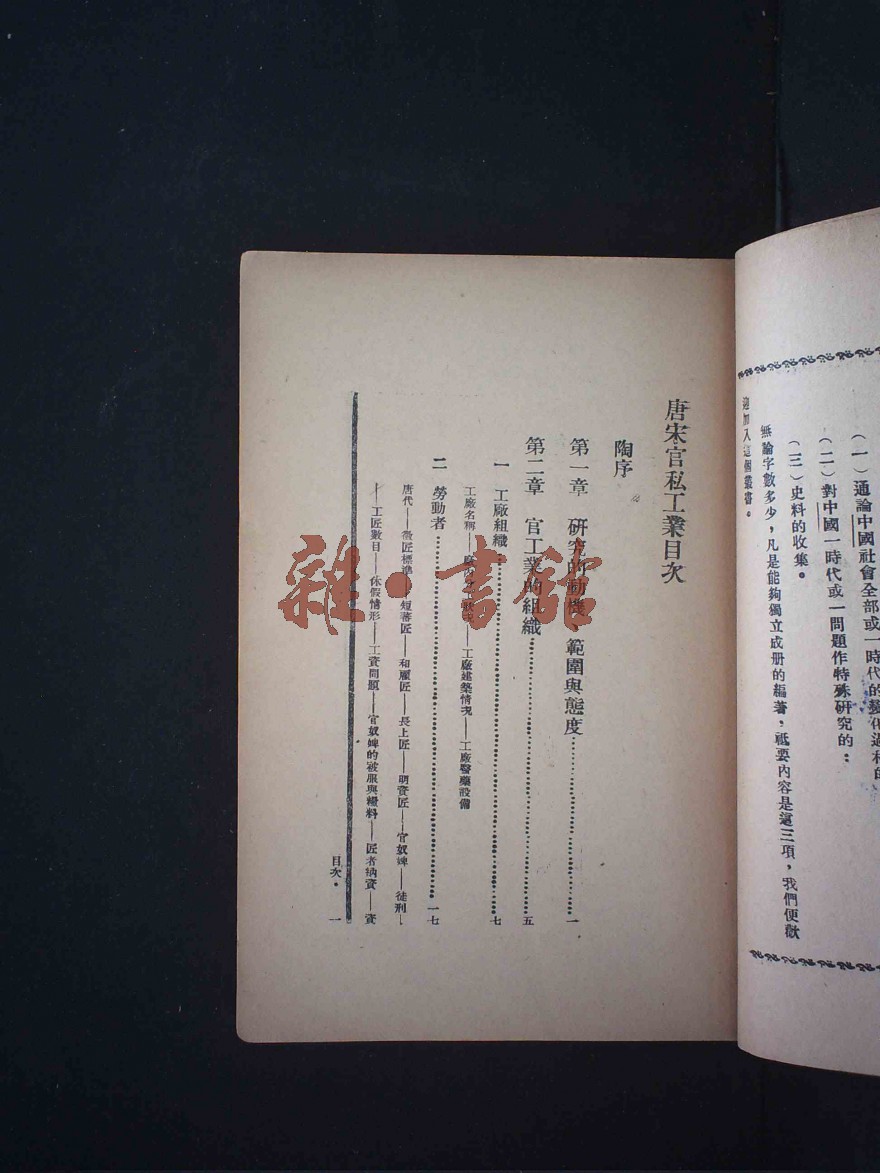 (一)通論中國社會全部或一時代的變化過程的
(二)對中國一時代或一問題作特殊研究的:
(三)史料的收集。
無論字數多少,凡是能夠獨立成册的編著,祇要內容是這三項,我們便歡
迎加入這個叢書。
唐宋官私工業目次
陶序
第一章 研究的動機、範圍與態度…………一
第二章 官工業的組織…………五
一 工廠組織…………七
工廠名稱——廠內⋯⋯狀況——工廠建築情況——工廠醫藥設備
二 勞動者…………一七
唐代——徵匠標準——短蕃匠——和雇匠——長上匠——明資匠——官奴婢——徒刑——
——工匠數目——休假情形——工資問題——官奴婢的被服與糧料——匠者納資——資
目次。 一
雜·書館